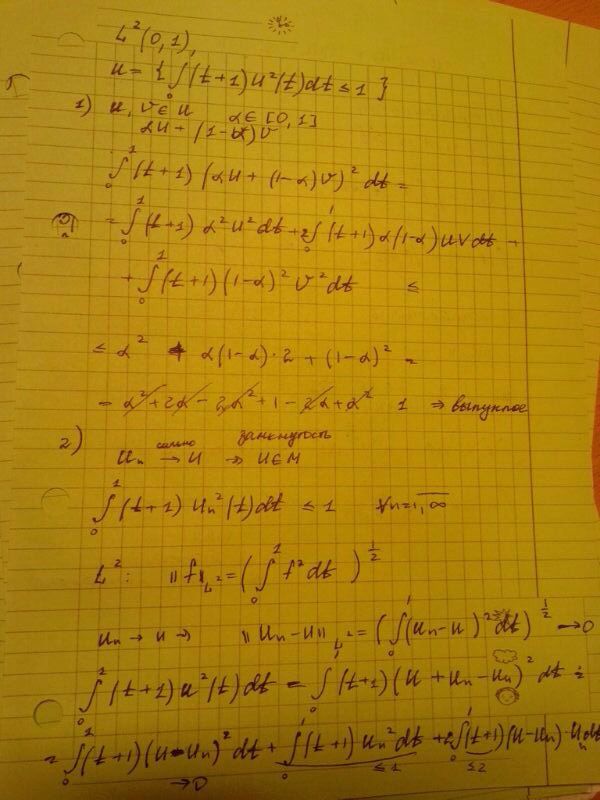 L²(0,1),
U = { ∫₀¹ (t+1) u²(t) dt ≤ 1 }
1) u, v ∈ U   α ∈ [0,1]
αu + (1-α)v
∫₀¹ (t+1) (αu + (1-α)v)² dt =
= ∫₀¹ (t+1) α²u² dt + 2∫₀¹ (t+1) α(1-α) uv dt +
+ ∫₀¹ (t+1) (1-α)² v² dt ≤
≤ α² + α(1-α)·2 + (1-α)² =
= α² + 2α - 2α² + 1 - 2α + α²   1 ⇒ выпуклое
2) сильно   замкнутость
uₙ → u ⇒ u ∈ M
∫₀¹ (t+1) uₙ²(t) dt ≤ 1   ∀n = 1,∞
L²: ‖f‖_L² = (∫₀¹ f² dt)^½
uₙ → u ⇒ ‖uₙ - u‖_L² = (∫₀¹ (uₙ - u)² dt)^½ → 0
∫₀¹ (t+1) u²(t) dt = ∫₀¹ (t+1) (u + uₙ - uₙ)² dt =
= ∫₀¹ (t+1) (u - uₙ)² dt + ∫₀¹ (t+1) uₙ² dt + 2∫₀¹ (t+1) (u - uₙ)·uₙ dt
→ 0   ≤ 1   ≤ 2